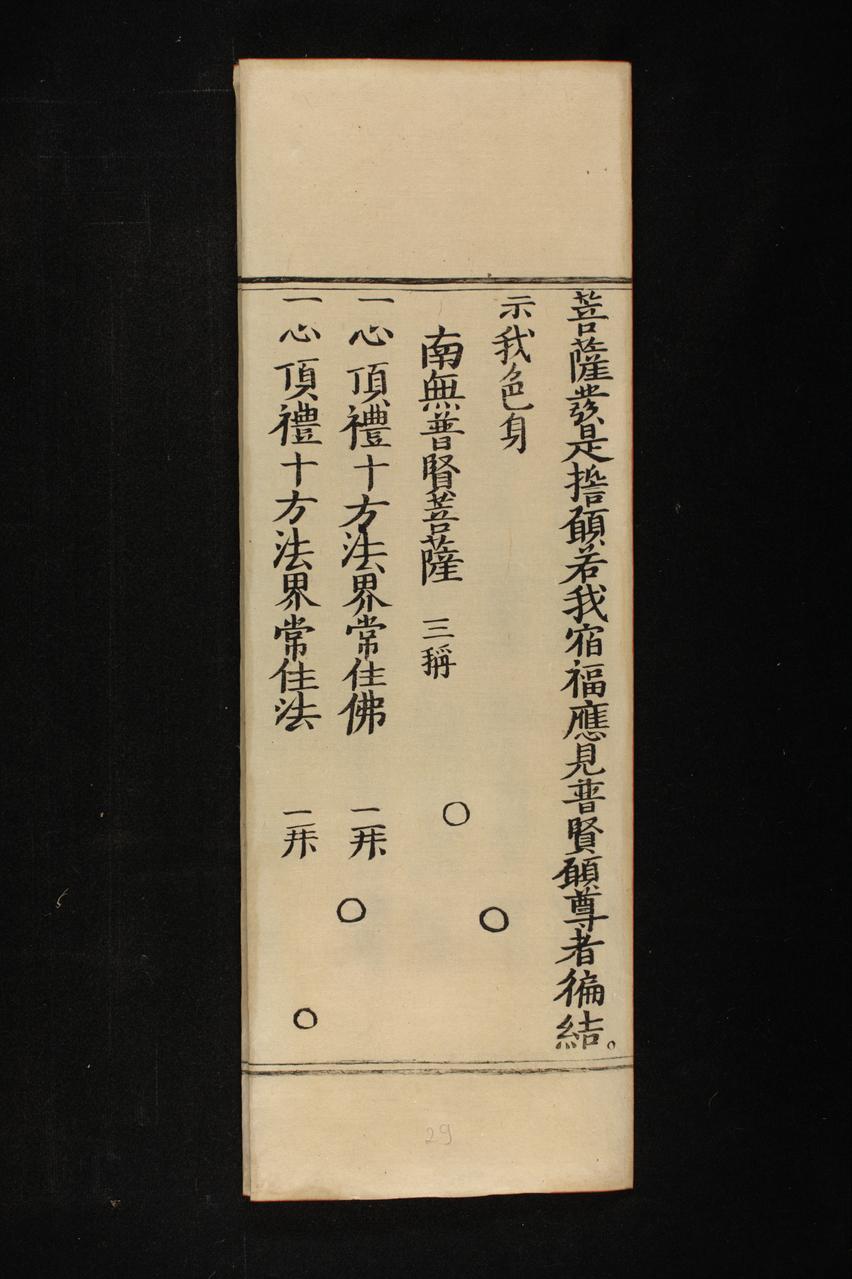 菩薩發是誓願若我宿福應見普賢願尊者徧結。
示我色身
南無普賢菩薩 三稱 ○
一心頂禮十方法界常住佛 一拜 ○
一心頂禮十方法界常住法 一拜 ○
29